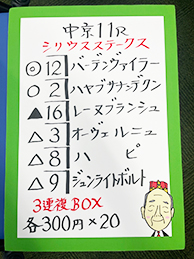 中京11R
シリウスステークス
◎12 バーデンヴァイラー
○2 ハヤブサナンデクン
▲16 レーヌブランシュ
△3 オーヴェルニュ
△8 ハピ
△9 ジュンライトボルト
3連複BOX
各300円×20